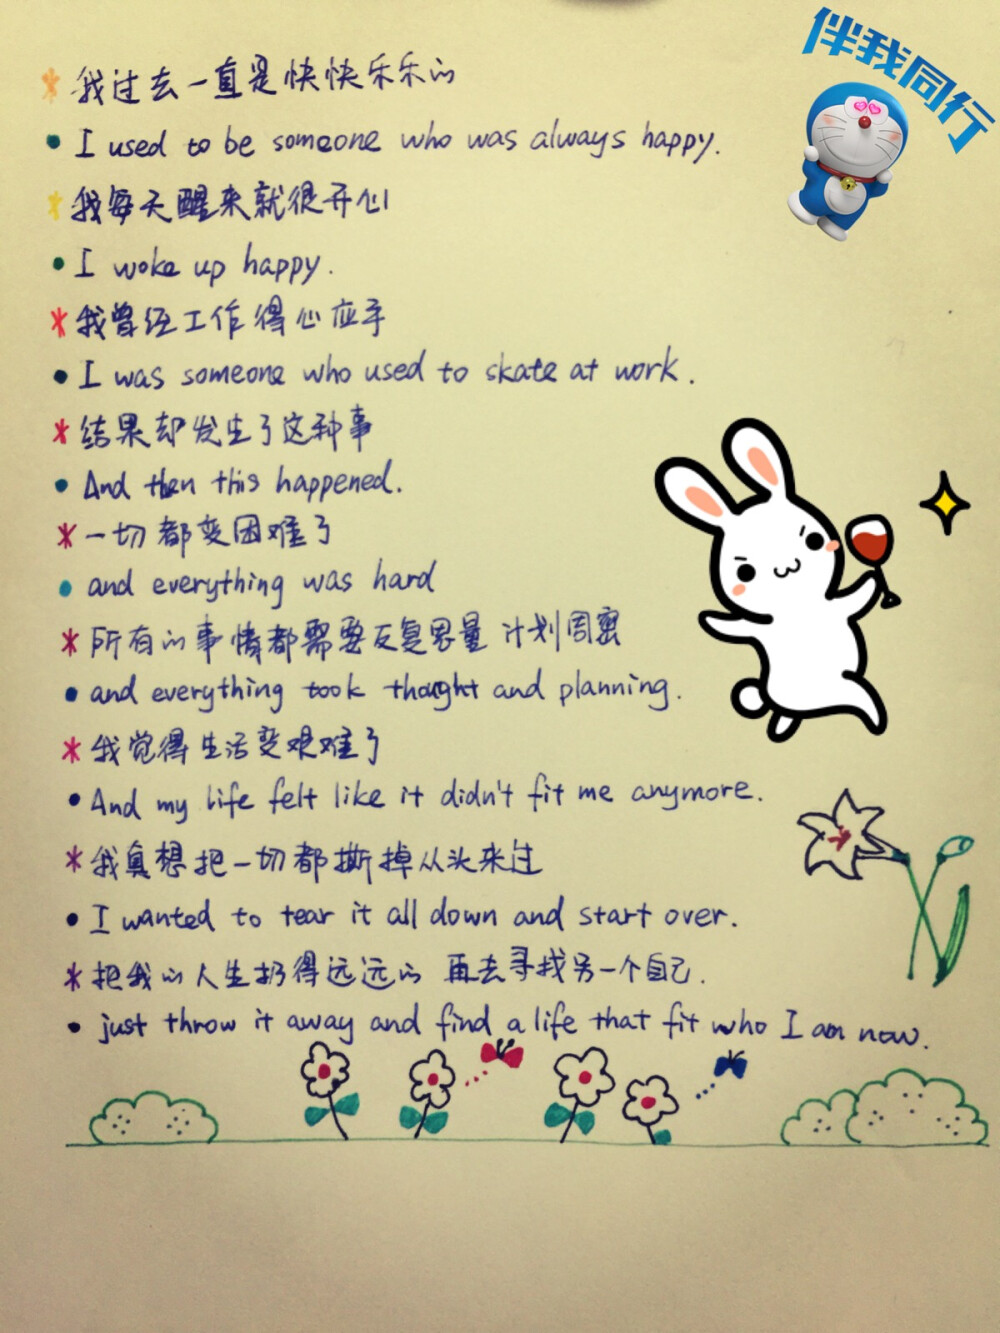 伴我同行
我过去一直是快快乐乐的
I used to be someone who was always happy.
我每天醒来就很开心
I woke up happy.
我曾经工作得心应手
I was someone who used to skate at work.
结果却发生了这种事
And then this happened.
一切都变困难了
and everything was hard
所有的事情都需要反复思量 计划周密
and everything took thought and planning.
我觉得生活变艰难了
And my life felt like it didn't fit me anymore.
我真想把一切都撕掉从头来过
I wanted to tear it all down and start over.
把我的人生扔得远远的 再去寻找另一个自己.
just throw it away and find a life that fit who I am now.